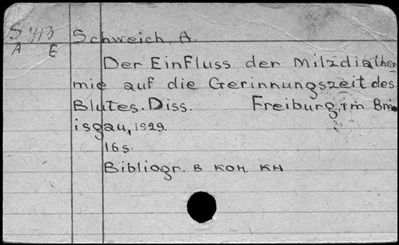 S 413 Schweich, A.
A E
Der Einfluss der Milzdiather
mie auf die Gerinnungszeit des
Blutes. Diss. Freiburg im Brei
isgau, 1929.
16s.
Bibliogr. в кон. кн